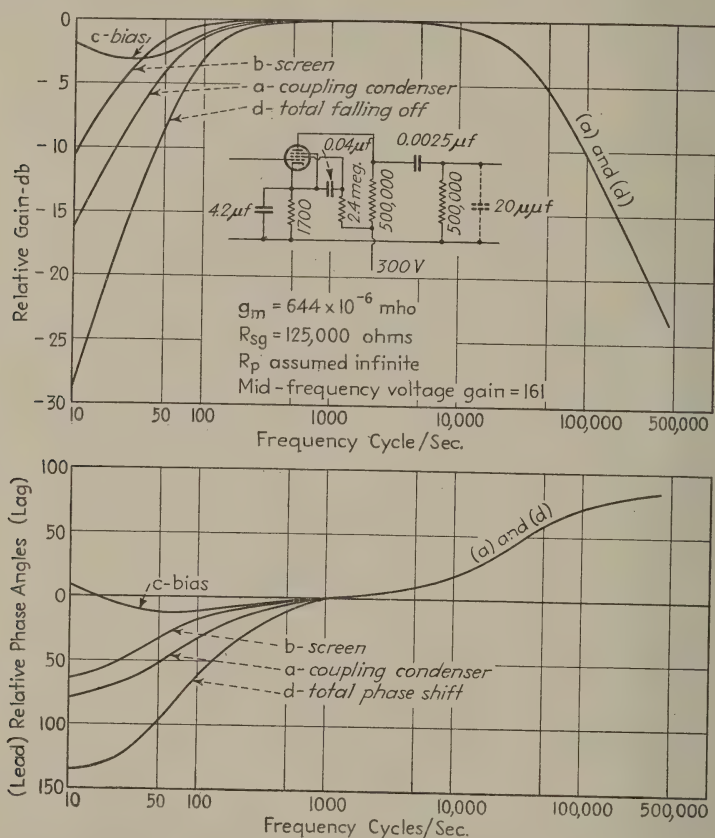 0
c-bias
b-screen
a-coupling condenser
d-total falling off
-5
-10
-15
-20
-25
-30
Relative Gain-db
0.04μf
0.0025μf
4.2μf
1700
2.4 meg.
500,000
500,000
20μμf
300V
(a) and (d)
gm = 644 x 10-6 mho
Rsg = 125,000 ohms
Rp assumed infinite
Mid-frequency voltage gain = 161
10 50 100 1000 10,000 100,000 500,000
Frequency Cycle/Sec.
100
50
0
50
100
150
(Lead) Relative Phase Angles (Lag)
(a) and (d)
c-bias
b-screen
a-coupling condenser
d-total phase shift
10 50 100 1000 10,000 100,000 500,000
Frequency Cycles/Sec.